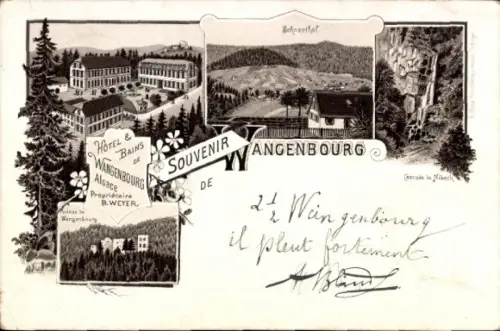 Schneethal
HOTEL &
BAINS
DE
WANGENBOURG
Alsace
Propriétaire
B. WEYER
SOUVENIR
DE
WANGENBOURG
Cascade de Nideck
Ruines de
Wangenbourg
2 1/2 Weingenbourg
il pleut fortement